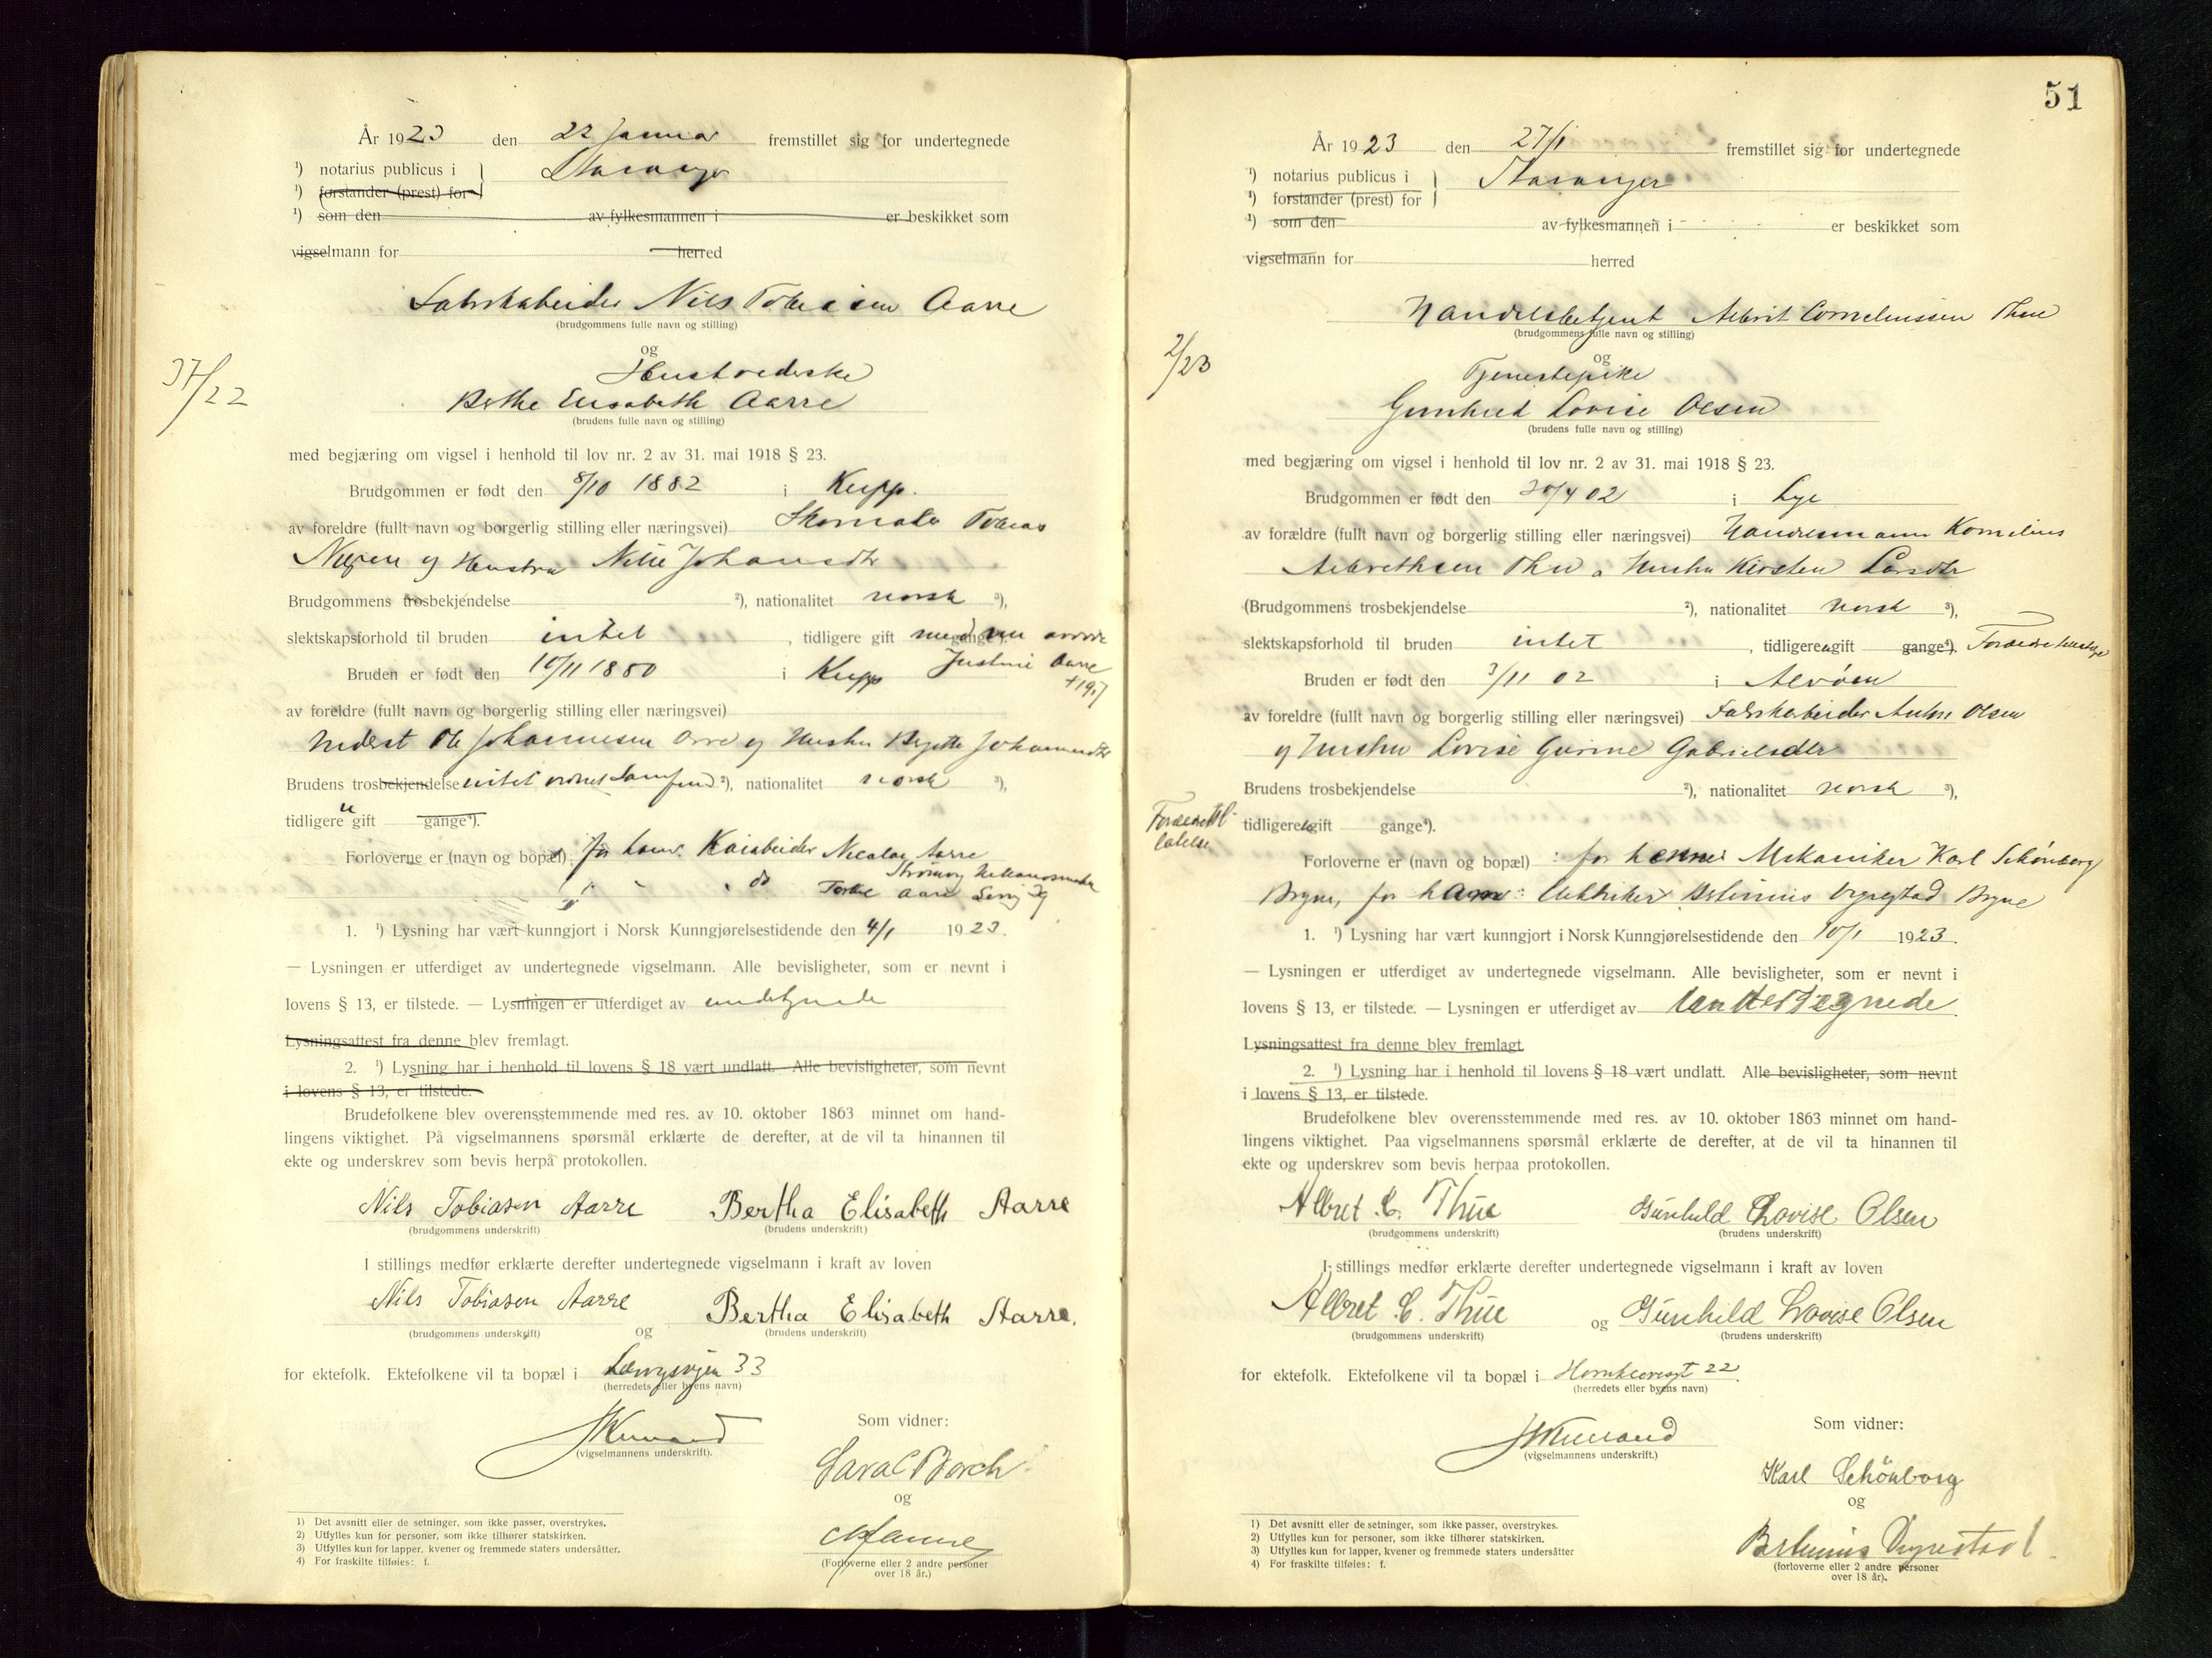 År 1923 den 22 Januar fremstillet sig for undertegnede
¹) notarius publicus i Stavanger
¹) forstander (prest) for
¹) som den av fylkesmannen i er beskikket som
vigselmann for herred
Nils Tobiasen Aarre
(brudgommens fulle navn og stilling)
og
37/22
Berthe Elisabeth Aarre
(brudens fulle navn og stilling)
med begjæring om vigsel i henhold til lov nr. 2 av 31. mai 1918 § 23.
Brudgommen er født den 8/10 1882 i Klepp.
av foreldre (fullt navn og borgerlig stilling eller næringsvei) Skomaker Tobias
og Hustru Johansdtr
Brudgommens trosbekjendelse ²), nationalitet norsk ³),
slektskapsforhold til bruden intet , tidligere gift gange⁴).
Justine Aarre
Bruden er født den 10/11 1880 i Klepp
av foreldre (fullt navn og borgerlig stilling eller næringsvei)
Ole Johannesen og Hustru Johannesdtr
Brudens trosbekjendelse intet ordnet Samfund ²), nationalitet norsk ³),
tidligere u gift gange⁴).
Forloverne er (navn og bopæl) for ham: Nicolai Aarre
do Aarre
1. ¹) Lysning har vært kunngjort i Norsk Kunngjørelsestidende den 4/1 1923.
— Lysningen er utferdiget av undertegnede vigselmann. Alle bevisligheter, som er nevnt i
lovens § 13, er tilstede. — Lysningen er utferdiget av undertegnede
Lysningsattest fra denne blev fremlagt.
2. ¹) Lysning har i henhold til lovens § 18 vært undlatt. Alle bevisligheter, som nevnt
i lovens § 13, er tilstede.
Brudefolkene blev overensstemmende med res. av 10. oktober 1863 minnet om hand-
lingens viktighet. På vigselmannens spørsmål erklærte de derefter, at de vil ta hinannen til
ekte og underskrev som bevis herpå protokollen.
Nils Tobiasen Aarre Bertha Elisabeth Aarre
(brudgommens underskrift) (brudens underskrift)
I stillings medfør erklærte derefter undertegnede vigselmann i kraft av loven
Nils Tobiasen Aarre Bertha Elisabeth Aarre.
(brudgommens underskrift) og (brudens underskrift)
for ektefolk. Ektefolkene vil ta bopæl i 33
(herredets eller byens navn)
(vigselmannens underskrift).
Som vidner:
Sara C Borch
og
(Forloverne eller 2 andre personer
over 18 år.)
1) Det avsnitt eller de setninger, som ikke passer, overstrykes.
2) Utfylles kun for personer, som ikke tilhører statskirken.
3) Utfylles kun for lapper, kvener og fremmede staters undersåtter.
4) For fraskilte tilføies: f.
51
År 1923 den 27/1 fremstillet sig for undertegnede
¹) notarius publicus i Stavanger
¹) forstander (prest) for
¹) som den av fylkesmannen i er beskikket som
vigselmann for herred
Handelsbetjent Albrit Corneliussen Thue
(brudgommens fulle navn og stilling)
og
2/23
Tjenestepike
Gunhild Lovise Olsen
(brudens fulle navn og stilling)
med begjæring om vigsel i henhold til lov nr. 2 av 31. mai 1918 § 23.
Brudgommen er født den 30/4 02 i Lye
av forældre (fullt navn og borgerlig stilling eller næringsvei) Handelsmann Kornelius
Albrethsen Thu og Hustru Kirsten Larsdtr
(Brudgommens trosbekjendelse ²), nationalitet norsk ³),
slektskapsforhold til bruden intet , tidligere ugift gange⁴).
Bruden er født den 3/11 02 i Alvøen
av foreldre (fullt navn og borgerlig stilling eller næringsvei) Fabrikarbeider Olsen
og Hustru Lovise Gurine Gabrielsdtr
Brudens trosbekjendelse ²), nationalitet norsk ³),
tidligere ugift gange⁴).
Forloverne er (navn og bopæl) : for henne: Mekaniker Karl Schönborg
Bryne, for ham: Bryne
1. ¹) Lysning har vært kunngjort i Norsk Kunngjørelsestidende den 10/1 1923.
— Lysningen er utferdiget av undertegnede vigselmann. Alle bevisligheter, som er nevnt i
lovens § 13, er tilstede. — Lysningen er utferdiget av undertegnede.
Lysningsattest fra denne blev fremlagt.
2. ¹) Lysning har i henhold til lovens § 18 vært undlatt. Alle bevisligheter, som nevnt
i lovens § 13, er tilstede.
Brudefolkene blev overensstemmende med res. av 10. oktober 1863 minnet om hand-
lingens viktighet. Paa vigselmannens spørsmål erklærte de derefter, at de vil ta hinannen til
ekte og underskrev som bevis herpaa protokollen.
Albret C. Thue Gunhild Lovise Olsen
(brudgommens underskrift) (brudens underskrift)
I stillings medfør erklærte derefter undertegnede vigselmann i kraft av loven
Albret C. Thue og Gunhild Lovise Olsen
(brudgommens underskrift) (brudens underskrift)
for ektefolk. Ektefolkene vil ta bopæl i 22.
(herredets eller byens navn)
(vigselmannens underskrift.)
Som vidner:
Karl Schönborg
og
(forloverne eller 2 andre personer
over 18 år).
1) Det avsnitt eller de setninger, som ikke passer, overstrykes.
2) Utfylles kun for personer, som ikke tilhører statskirken.
3) Utfylles kun for lapper, kvener og fremmede staters undersåtter
4) For fraskilte tilføies: f.